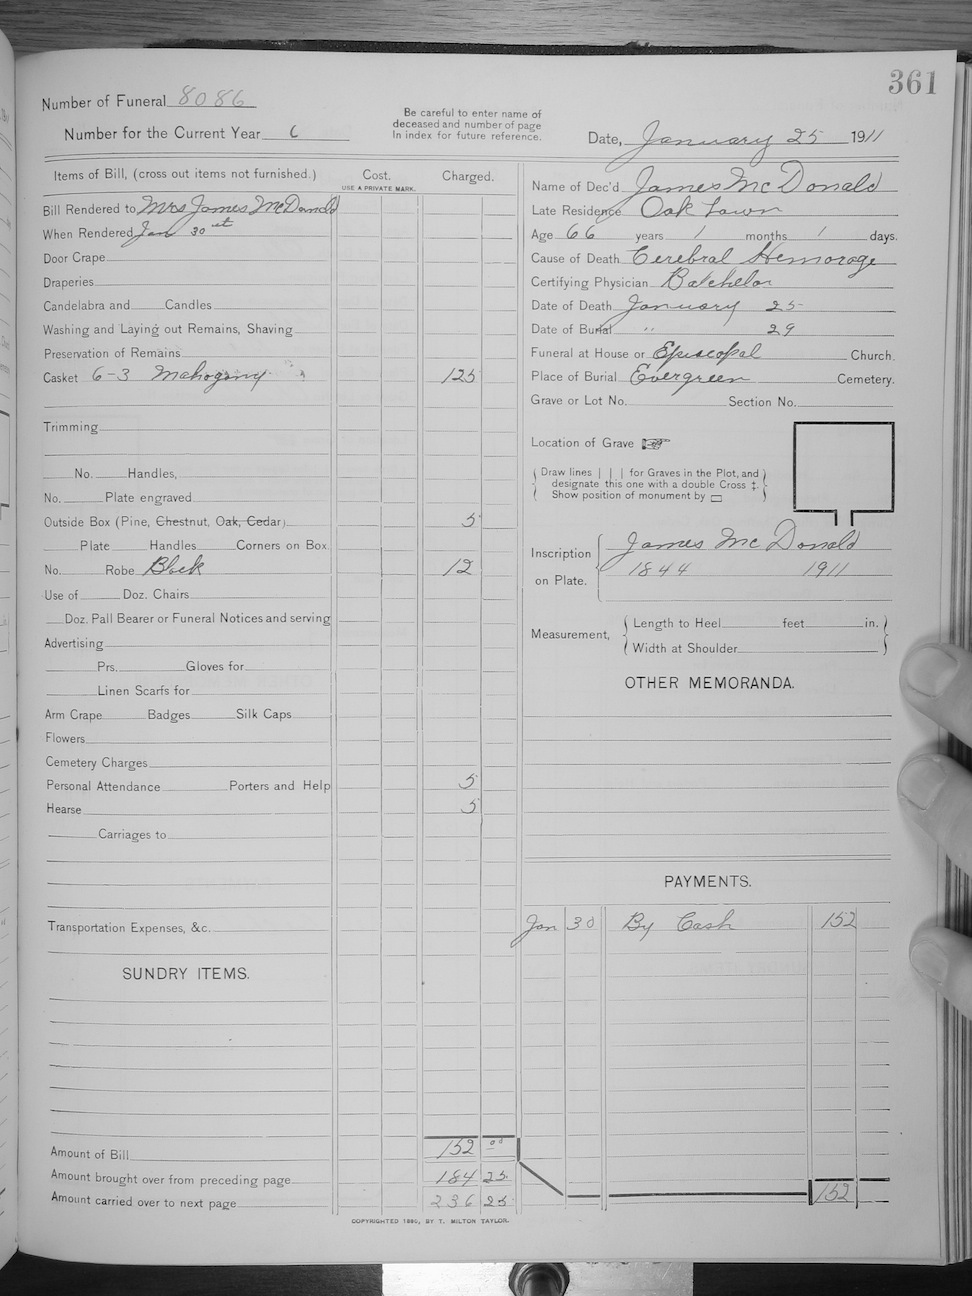 361
Number of Funeral 8086
Be careful to enter name of
deceased and number of page
In index for future reference.
Number for the Current Year 6
Date, January 25 1911
Items of Bill, (cross out items not furnished.) Cost. Charged.
USE A PRIVATE MARK.
Bill Rendered to Mrs James McDonald
When Rendered Jan 30 st
Door Crape
Draperies
Candelabra and Candles
Washing and Laying out Remains, Shaving
Preservation of Remains
Casket 6-3 Mahogony 125
Trimming
No. Handles,
No. Plate engraved
Outside Box (Pine, Chestnut, Oak, Cedar) 5
Plate Handles Corners on Box
No. Robe Black 12
Use of Doz. Chairs
Doz. Pall Bearer or Funeral Notices and serving
Advertising
Prs. Gloves for
Linen Scarfs for
Arm Crape Badges Silk Caps
Flowers
Cemetery Charges
Personal Attendance Porters and Help 5
Hearse 5
Carriages to
Transportation Expenses, &c.
SUNDRY ITEMS.
Amount of Bill 152 00
Amount brought over from preceding page 184 25
Amount carried over to next page 236 25
Name of Dec'd James McDonald
Late Residence Oak Lawn
Age 66 years 1 months 1 days.
Cause of Death Cerebral Hemorage
Certifying Physician Batchelor
Date of Death January 25
Date of Burial " 29
Funeral at House or Episcopal Church.
Place of Burial Evergreen Cemetery.
Grave or Lot No. Section No.
Location of Grave
Draw lines | | | for Graves in the Plot, and
designate this one with a double Cross ‡.
Show position of monument by ▭
Inscription
on Plate.
James McDonald
1844 1911
Measurement,
Length to Heel feet in.
Width at Shoulder
OTHER MEMORANDA.
PAYMENTS.
Jan 30 By Cash 152
152
COPYRIGHTED 1890, BY T. MILTON TAYLOR.